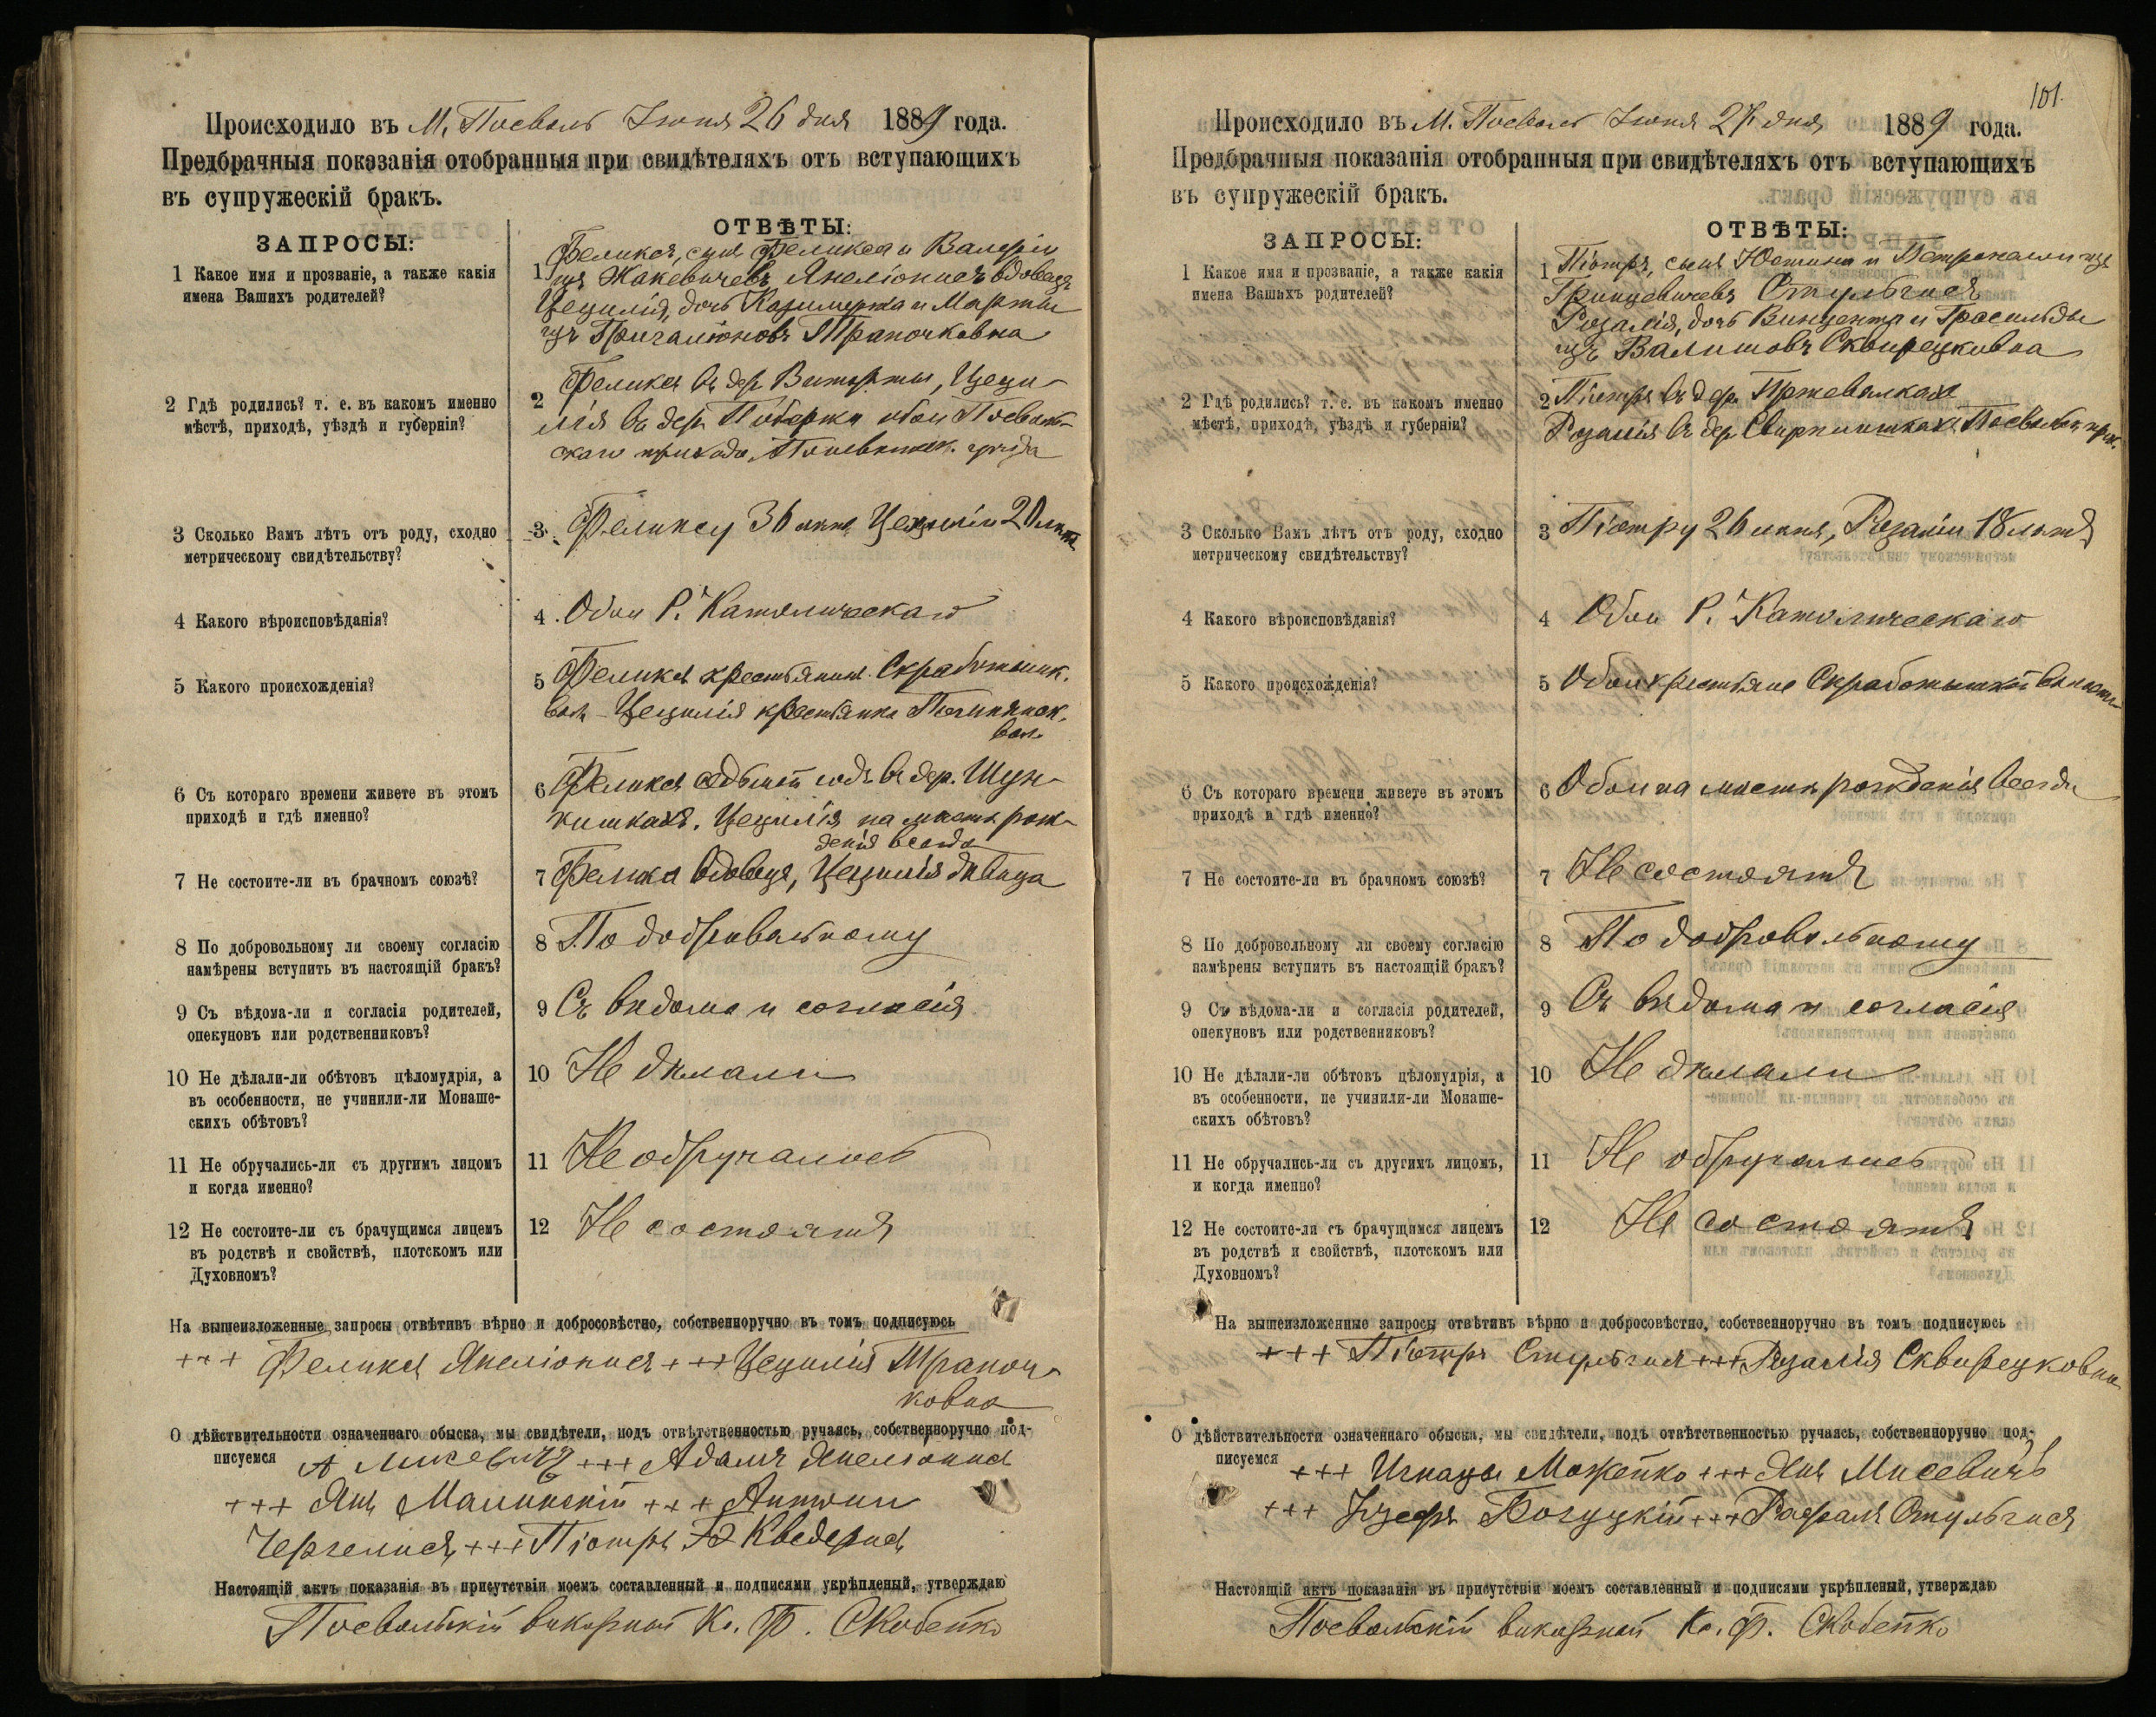 Происходило въ М. Посволь Іюня 26 дня 1889 года.
Предбрачныя показанія отобранныя при свидѣтеляхъ отъ вступающихъ
въ супружескій бракъ.
ЗАПРОСЫ:
ОТВѢТЫ:
1 Какое имя и прозваніе, а также какія
имена Вашихъ родителей?
1 Феликсъ, сынъ Феликса и Валеріи
изъ Жакевичевъ Янеліонисъ вдовецъ
Цецилія, дочь Казимержа и Марты
изъ Григаліоновъ Трапочковна
2 Гдѣ родились? т. е. въ какомъ именно
мѣстѣ, приходѣ, уѣздѣ и губерніи?
2 Феликсъ въ дер. Цеци-
лія въ дер. обои Посволь-
скаго прихода, уѣзда
3 Сколько Вамъ лѣтъ отъ роду, сходно
метрическому свидѣтельству?
3 Феликсу 36 лѣтъ Цециліи 20 лѣтъ
4 Какого вѣроисповѣданія?
4 Обои Р. Католическаго
5 Какого происхожденія?
5 Феликсъ крестьянинъ Скработышк.
вол. Цецилія крестьянка
вол.
6 Съ котораго времени живете въ этомъ
приходѣ и гдѣ именно?
6 Феликсъ седьмой годъ въ дер. Шун-
кишкахъ. Цецилія на мѣстѣ рож-
денія всегда
7 Не состоите-ли въ брачномъ союзѣ?
7 Феликсъ вдовецъ, Цецилія дѣвица
8 По добровольному ли своему согласію
намѣрены вступить въ настоящій бракъ?
8 По добровольному
9 Съ вѣдома-ли и согласія родителей,
опекуновъ или родственниковъ?
9 Съ вѣдома и согласія
10 Не дѣлали-ли обѣтовъ цѣломудрія, а
въ особенности, не учинили-ли Монаше-
скихъ обѣтовъ?
10 Не дѣлали
11 Не обручались-ли съ другимъ лицомъ
и когда именно?
11 Не обручались
12 Не состоите-ли съ брачущимся лицемъ
въ родствѣ и свойствѣ, плотскомъ или
Духовномъ?
12 Не состоятъ
На вышеизложенные запросы отвѣтивъ вѣрно и добросовѣстно, собственноручно въ томъ подписуюсь
+++ Феликсъ Янеліонисъ +++ Цецилія Трапоч-
ковна
О дѣйствительности означеннаго обыска, мы свидѣтели, подъ отвѣтственностью ручаясь, собственноручно под-
писуемся +++ Адамъ Янеліонисъ
+++ Янъ Малинскій +++ Антони
Чергелисъ +++ Піотръ Кведерисъ
Настоящій актъ показанія въ присутствіи моемъ составленный и подписями укрѣпленый, утверждаю
Посвольскій викарный Кс. Ф. Скобейко
101.
Происходило въ М. Посволь Іюня 27 дня 1889 года.
Предбрачныя показанія отобранныя при свидѣтеляхъ отъ вступающихъ
въ супружескій бракъ.
ЗАПРОСЫ:
ОТВѢТЫ:
1 Какое имя и прозваніе, а также какія
имена Вашихъ родителей?
1 Піотръ, сынъ Юстина и Петронели изъ
Гринцевичевъ Стульгисъ
Розалія, дочь Винцента и Гросильды
изъ Валишовъ Сквирецковна
2 Гдѣ родились? т. е. въ какомъ именно
мѣстѣ, приходѣ, уѣздѣ и губерніи?
2 Піотръ въ дер. Пржевалкахъ
Розалія въ дер. Посвольск. прих.
3 Сколько Вамъ лѣтъ отъ роду, сходно
метрическому свидѣтельству?
3 Піотру 26 лѣтъ, Розаліи 18 лѣтъ
4 Какого вѣроисповѣданія?
4 Обои Р. Католическаго
5 Какого происхожденія?
5 Обои крестьяне Скработышкой волости
6 Съ котораго времени живете въ этомъ
приходѣ и гдѣ именно?
6 Обои на мѣстѣ рожденія всегда
7 Не состоите-ли въ брачномъ союзѣ?
7 Не состоятъ
8 По добровольному ли своему согласію
намѣрены вступить въ настоящій бракъ?
8 По добровольному
9 Съ вѣдома-ли и согласія родителей,
опекуновъ или родственниковъ?
9 Съ вѣдома и согласія
10 Не дѣлали-ли обѣтовъ цѣломудрія, а
въ особенности, не учинили-ли Монаше-
скихъ обѣтовъ?
10 Не дѣлали
11 Не обручались-ли съ другимъ лицомъ,
и когда именно?
11 Не обручались
12 Не состоите-ли съ брачущимся лицемъ
въ родствѣ и свойствѣ, плотскомъ или
Духовномъ?
12 Не состоятъ
На вышеизложенные запросы отвѣтивъ вѣрно и добросовѣстно, собственноручно въ томъ подписуюсь
+++ Піотръ Стульгисъ +++ Розалія Сквирецковна
О дѣйствительности означеннаго обыска, мы свидѣтели, подъ отвѣтственностью ручаясь, собственноручно под-
писуемся +++ Игнацы Можейко +++ Янъ Мисевичъ
+++ Іузефъ Богуцкій +++ Рафалъ Стульгисъ
Настоящій актъ показанія въ присутствіи моемъ составленный и подписями укрѣпленый, утверждаю
Посвольскій викарный Кс. Ф. Скобейко